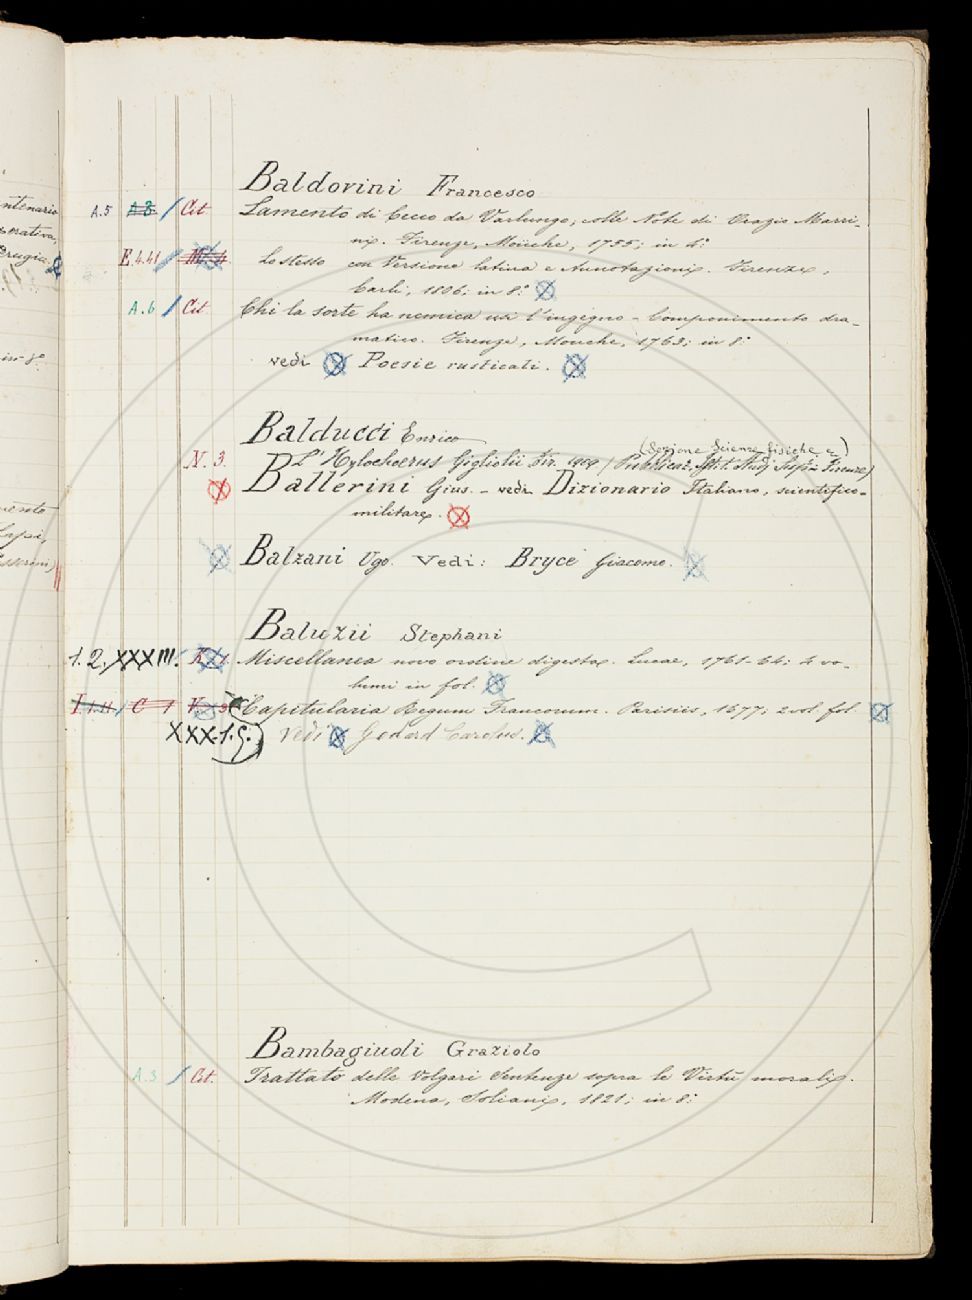 Baldovini Francesco
A.5 A 3 / Cit Lamento di Cecco da Varlungo, colle Note di Orazio Marri-
ni. Firenze, Moücke, 1755; in 4°
E.4.41 / Lo stesso con Versione latina e Annotazioni. Firenze,
Carli, 1806; in 8°
A.6 / Cit. Chi la sorte ha nemica usi l'ingegno - Componimento dra-
matico. Firenze, Moucke, 1763; in 8°
vedi Poesie rusticali.
Balducci Enrico
(Sezione Scienze fisiche e)
N. 3. L'Hylochoerus Gigliolii Fir. 1909 (Pubblicaz. Ist. St. Sup. in Firenze)
Ballerini Gius. - vedi Dizionario Italiano, scientifico-
militare.
Balzani Ugo. Vedi: Bryce Giacomo.
Baluzii Stephani
1.2.XXXIII. Miscellanea novo ordine digesta. Lucae, 1761-64; 4 vo-
lumi in fol.
Capitularia Regum Francorum. Parisiis, 1677; 2 vol. fol.
XXX.1.5. Vedi Godard Carolus.
Bambagiuoli Graziolo
A.3 / Cit. Trattato delle Volgari Sentenze sopra le Virtù morali.
Modena, Soliani, 1821; in 8°